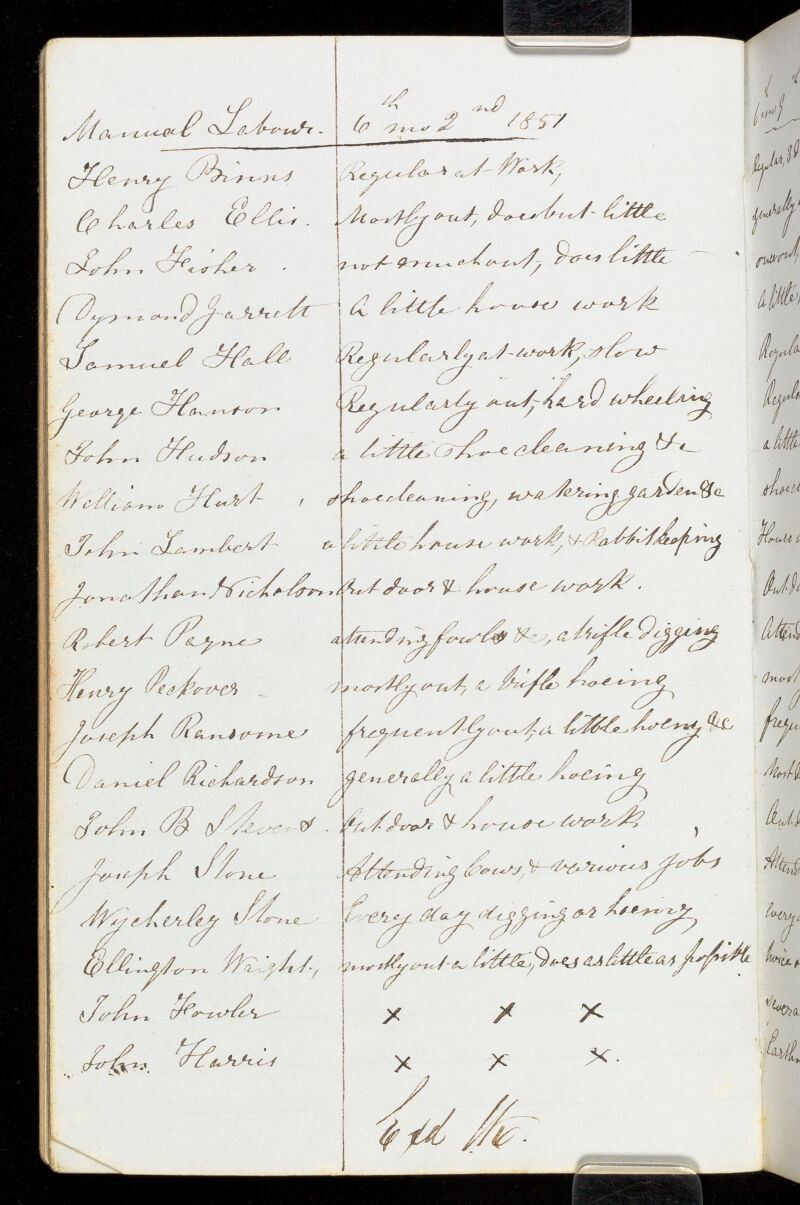 Manual Labour. 6th mo 2nd 1851
Henry Binns Regular at Work,
Charles Ellis. Mostly out, does but little
John Fisher. not much out, does little
Dymond Jarrett A little house work
Samuel Hall Regularly at work, slow
George Hanson Regularly out, hard wheeling
John Hudson a little shoe cleaning &c
William Hurt, shoecleaning, watering garden &c
John Lambert a little house work, & Rabbit keeping
Jonathan Nicholson Out door & house work.
Robert Payne attending fowls &c, a trifle digging
Henry Peckover mostly out, a trifle hoeing
Joseph Ransome frequently out, a little hoeing &c
Daniel Richardson generally a little hoeing
John B Stevens. Out door & house work
Joseph Stone Attending Cows, & various jobs
Wycherley Stone Every day digging or hoeing
Ellington Wright, mostly out a little, Does as little as possible
John Fowler x x x
John Harris x x x.
Exd
6 mo 9
Regular,
generally
once out,
A little,
a little
House
Out do
Attend
most
Out d
Attend
every
twice
severa